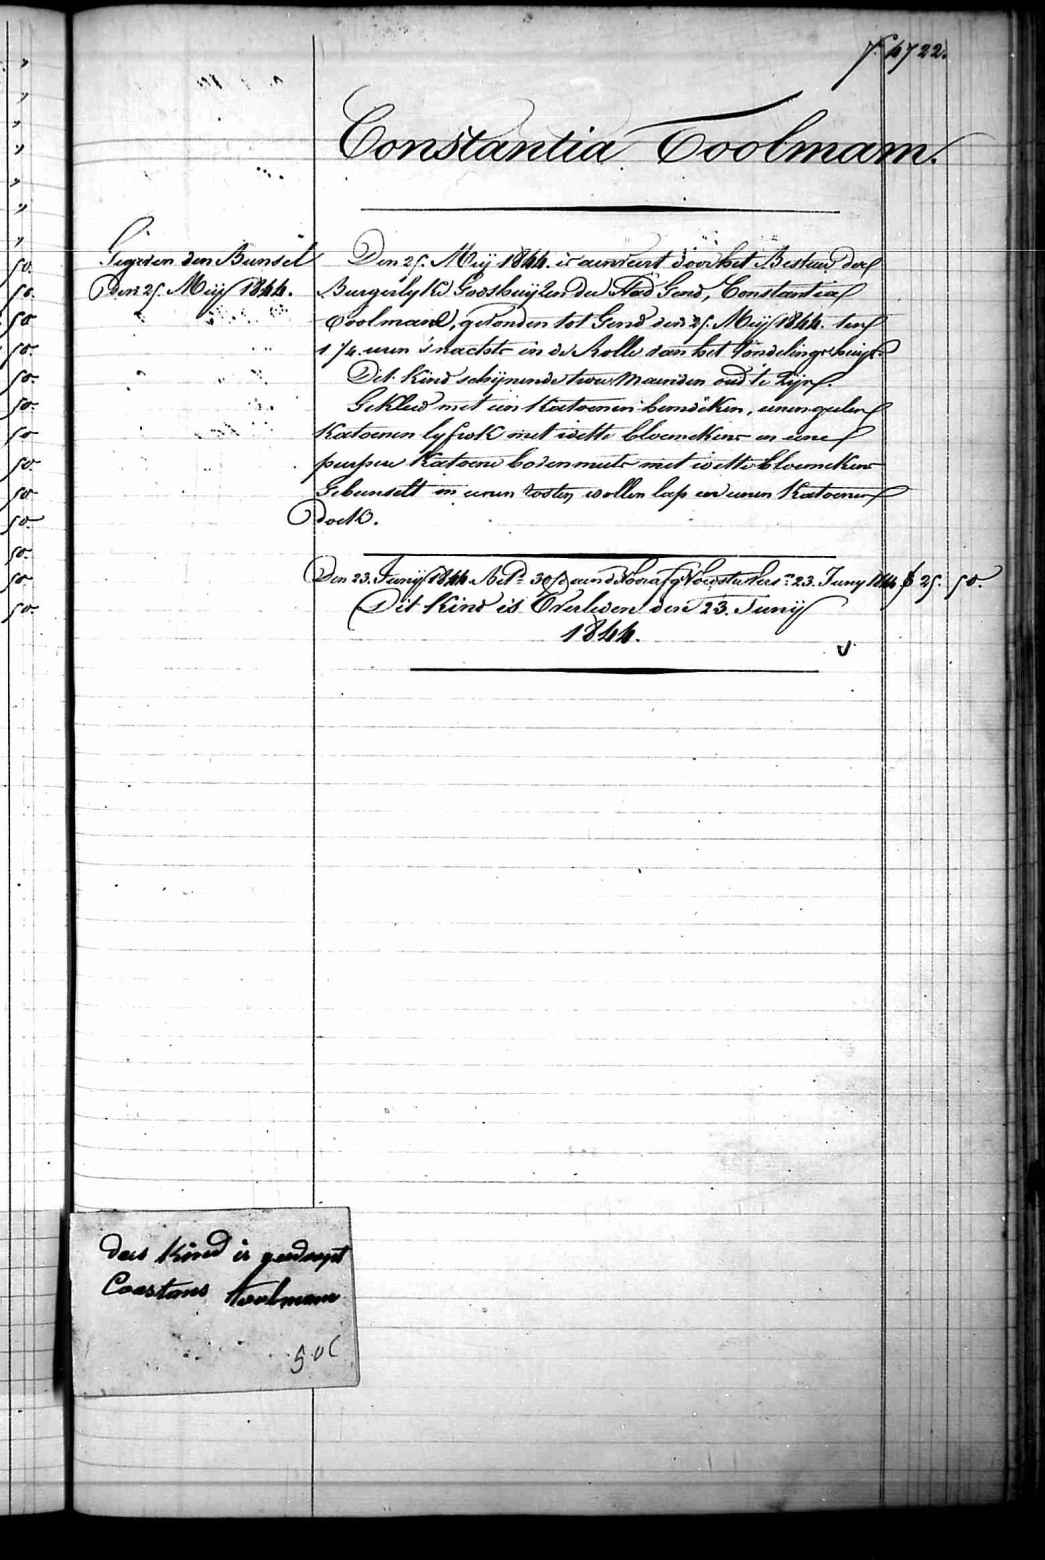 fo. 4722.
Constantia Toolmam.
Gegeven den Bunsel
Den 25. Meij 1844.
Den 25. Meij 1844. is aenveirt door het Bestuer der
Burgerlyke Godshuijzen der Stad Gend, Constantia
Toolmam, gevonden tot Gend den 25. Meij 1844. ten
1 1/4. uren 's nachts in de Rolle van het Vondelingshuijs.
Dit Kind schijnende twee Maenden oud te Zijn.
Gekleed met een Katoenen hemdeken, eenen geelen
Katoenen lyfrok met witte bloemekens en eene
purpere Katoene bovenmuts met witte bloemekens
Gebunselt in eenen rosten wollen lap en eenen Katoenen
doek.
Den 23. Junij 1844 30 23. Juny 1844 25. 50.
Dit Kind is Overleden den 23. Junij
1844.
das Kind is gedoopt
Coastans Toolmam
50.
50.
50
50.
50.
50.
50
50.
50
50
50.
50
50.